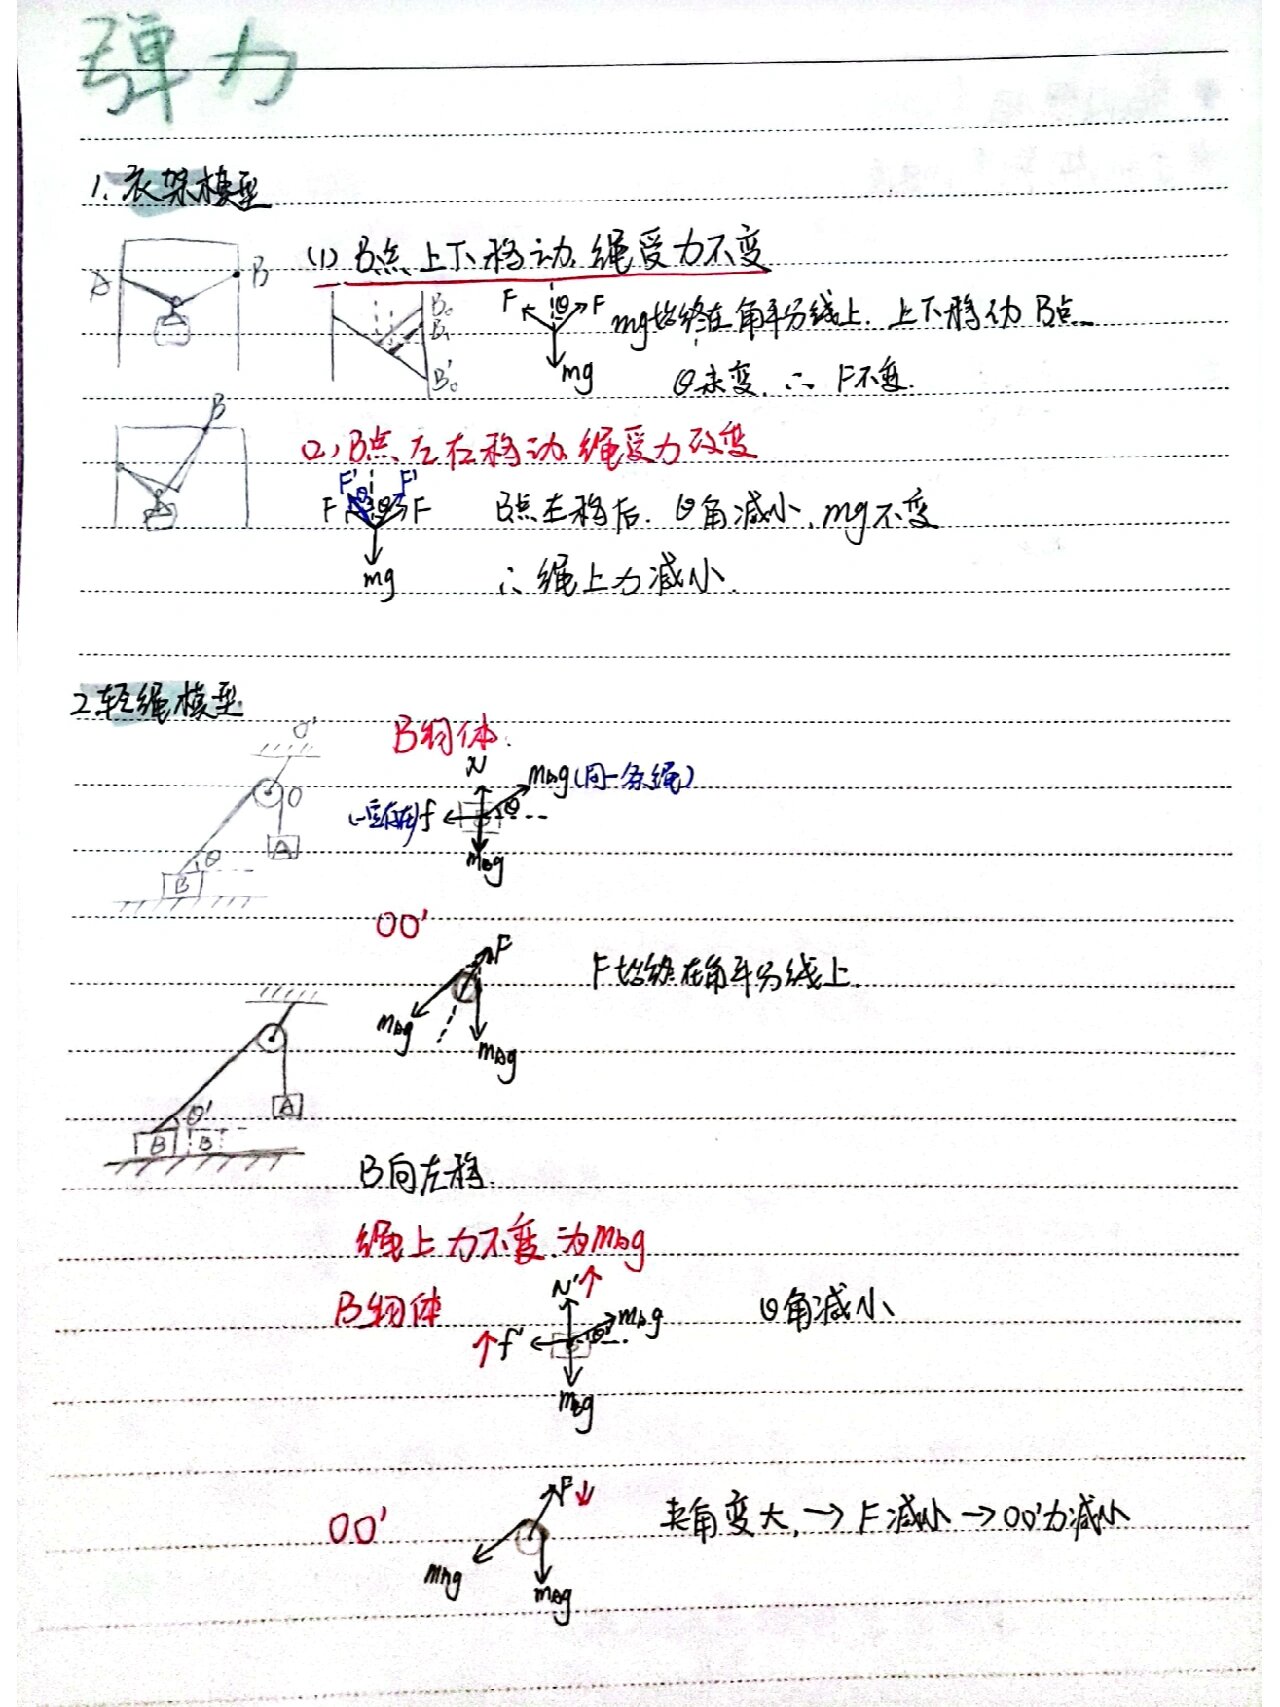 弹力
1. 衣架模型
A B
(1) B点上下移动 绳受力不变
B₀ B₁ B₀'
F θ F
mg
mg始终在角平分线上. 上下移动B点
θ未变. ∴ F不变.
B
(2) B点左右移动 绳受力改变
F' θ F'
F F
mg
B点左移后. θ角减小, mg不变
∴ 绳上力减小.
2. 轻绳模型
O'
O
A
B θ
B物体:
N
mAg (同一条绳)
(一定存在) f θ
mBg
OO'
F
mAg
mAg
F始终在角平分线上.
θ'
A
B B
B向左移.
绳上力不变 为mAg
B物体
N'↑
↑f' mAg
θ'
mBg
θ角减小
OO'
F↓
mAg
mAg
夹角变大, → F减小 → OO'力减小